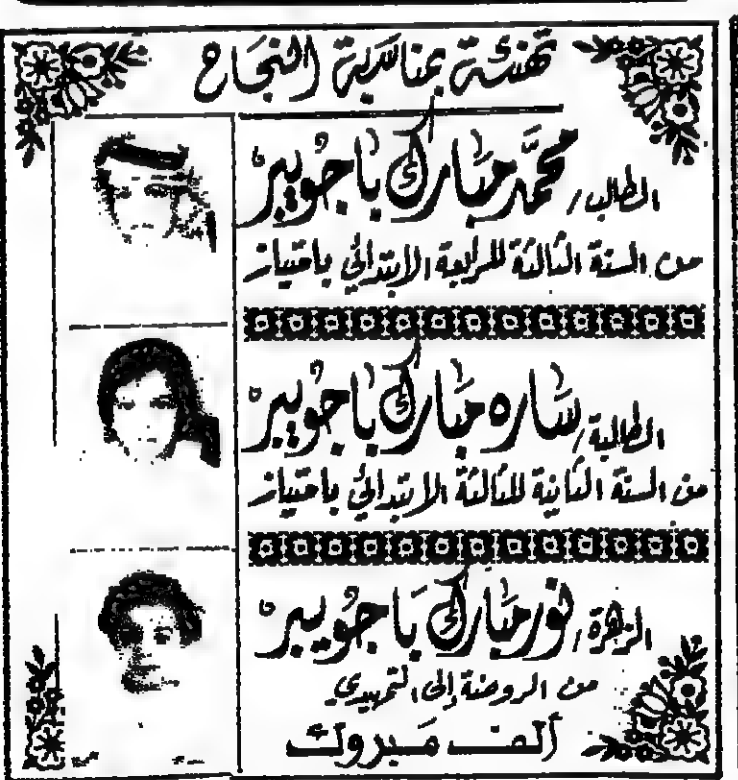 تهنئة بمناسبة النجاح
الطالب / محمد مبارك باجويبر
من السنة الثالثة للرابعة الابتدائي بامتياز
الطالبة / ساره مبارك باجويبر
من السنة الثانية للثالثة الابتدائي بامتياز
الزهرة / نور مبارك باجويبر
من الروضة إلى التمهيدي
ألف مبروك